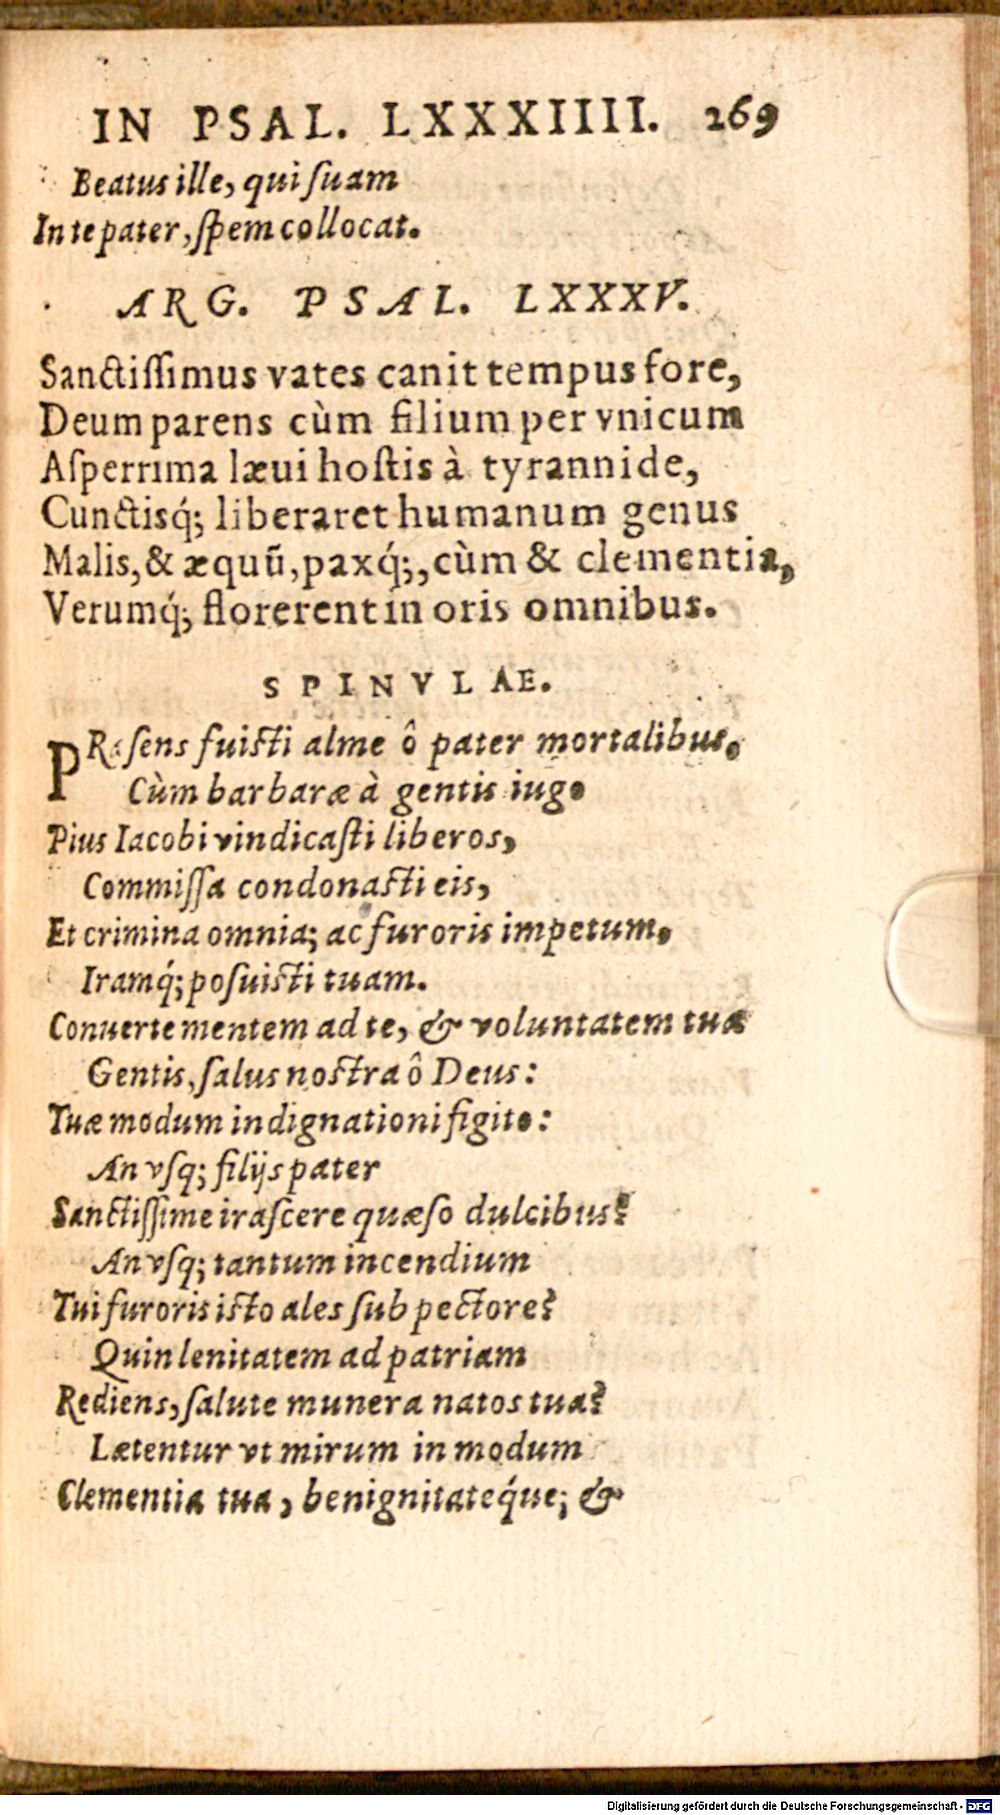 IN PSAL. LXXXIIII. 269
Beatus ille, qui ſuam
In te pater, ſpem collocat.
ARG. PSAL. LXXXV.
Sanctiſſimus vates canit tempus fore,
Deum parens cùm filium per vnicum
Aſperrima læui hoſtis à tyrannide,
Cunctisq́; liberaret humanum genus
Malis, & æquũ, paxq́;, cùm & clementia,
Verumq́; florerent in oris omnibus.
SPINVLAE.
PRæſens fuiſti alme ô pater mortalibus,
Cùm barbaræ à gentis iugo
Pius Iacobi vindicaſti liberos,
Commiſſa condonaſti eis,
Et crimina omnia; ac furoris impetum,
Iramq́; poſuiſti tuam.
Conuerte mentem ad te, & voluntatem tuæ
Gentis, ſalus noſtra ô Deus:
Tuæ modum indignationi figito:
An vſq; filijs pater
Sanctiſſime iraſcere quæſo dulcibus?
An vſq; tantum incendium
Tui furoris iſto ales ſub pectore?
Quin lenitatem ad patriam
Rediens, ſalute munera natos tua?
Lætentur vt mirum in modum
Clementia tua, benignitateq́ue; &
Digitalisierung gefördert durch die Deutsche Forschungsgemeinschaft - DFG